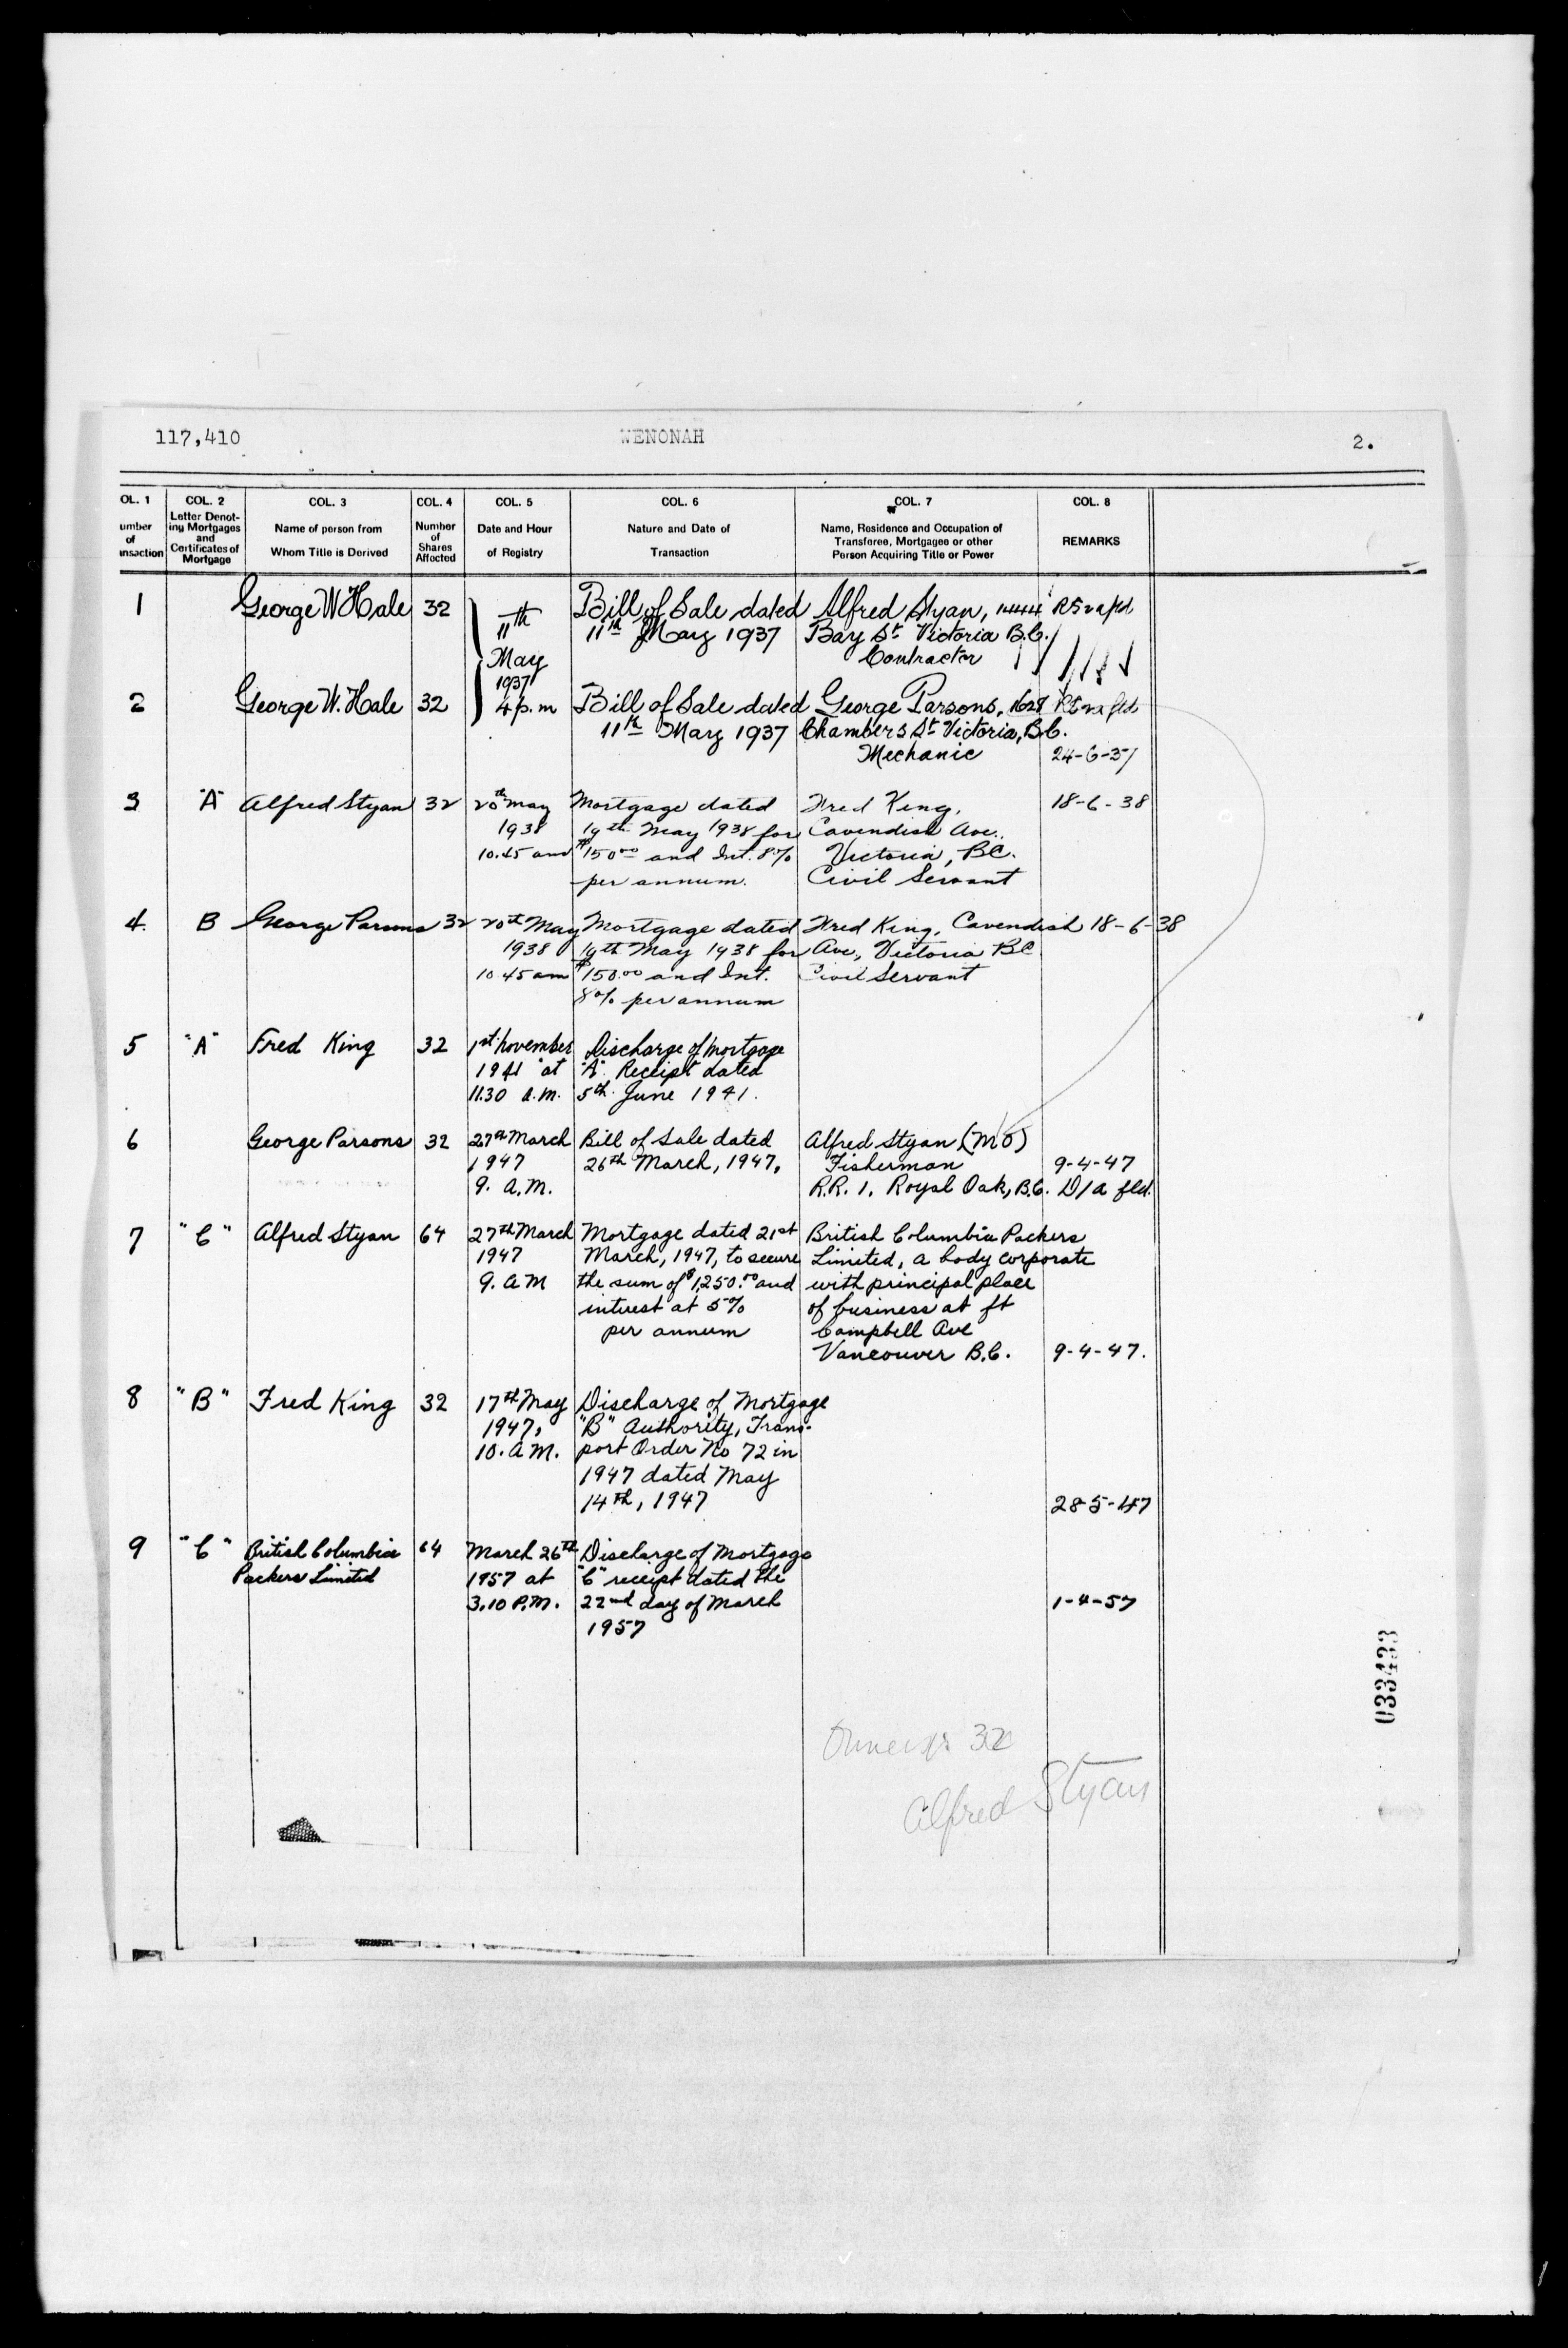 117,410 WENONAH 2.
OL. 1 COL. 2 COL. 3 COL. 4 COL. 5 COL. 6 COL. 7 COL. 8
umber of nsaction
Letter Denot-
ing Mortgages
and
Certificates of
Mortgage
Name of person from
Whom Title is Derived
Number
of
Shares
Affected
Date and Hour
of Registry
Nature and Date of
Transaction
Name, Residence and Occupation of
Transferee, Mortgagee or other
Person Acquiring Title or Power
REMARKS
1 George W Hale 32
11th
May
1937
4 p.m
Bill of Sale dated
11th May 1937
Alfred Styan, 1444
Bay St Victoria B.C.
Contractor
2 George W. Hale 32
Bill of Sale dated
11th May 1937
George Parsons, 1628
Chambers St Victoria, B.C.
Mechanic
24-6-37
3 "A" Alfred Styan 32
20th May
1938
10.45 am
Mortgage dated
19th May 1938 for
$150.00 and Int. 8%
per annum.
Fred King,
Cavendish Ave.,
Victoria, BC.
Civil Servant
18-6-38
4. B George Parsons 32
20th May
1938
10 45 am
Mortgage dated
19th May 1938 for
$150.00 and Int.
8% per annum
Fred King, Cavendish
Ave, Victoria BC
Civil Servant
18-6-38
5 "A" Fred King 32
1st November
1941 at
11.30 A.M.
Discharge of Mortgage
"A". Receipt dated
5th June 1941.
6 George Parsons 32
27th March
1947
9. A.M.
Bill of Sale dated
26th March, 1947,
Alfred Styan (MO)
Fisherman
R.R. 1, Royal Oak, B.C.
9-4-47
D/a fld.
7 "C" Alfred Styan 64
27th March
1947
9. AM
Mortgage dated 21st
March, 1947, to secure
the sum of $1,250.00 and
interest at 5%
per annum
British Columbia Packers
Limited, a body corporate
with principal place
of business at ft
Campbell Ave
Vancouver B.C.
9-4-47.
8 "B" Fred King 32
17th May
1947,
10. AM.
Discharge of Mortgage
"B" Authority, Trans-
port Order No 72 in
1947 dated May
14th, 1947
28-5-47
9 "C" British Columbia
Packers Limited
64
March 26th
1957 at
3.10 P.M.
Discharge of Mortgage
"C" receipt dated the
22nd day of March
1957
1-4-57
033433
32
Alfred Styan